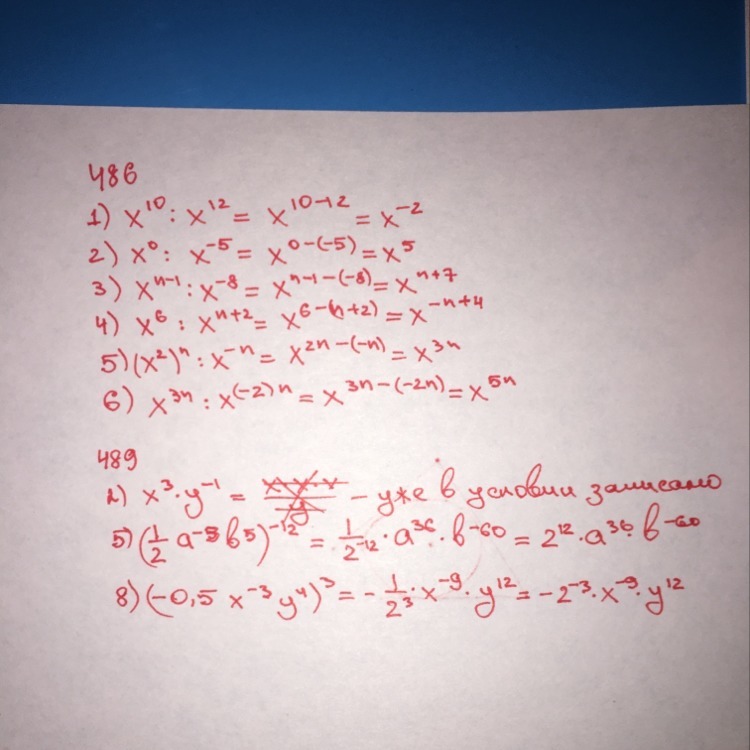 486
1) x¹⁰ : x¹² = x¹⁰⁻¹² = x⁻²
2) x⁰ : x⁻⁵ = x⁰⁻⁽⁻⁵⁾ = x⁵
3) xⁿ⁻¹ : x⁻⁸ = xⁿ⁻¹⁻⁽⁻⁸⁾ = xⁿ⁺⁷
4) x⁶ : xⁿ⁺² = x⁶⁻⁽ⁿ⁺²⁾ = x⁻ⁿ⁺⁴
5) (x²)ⁿ : x⁻ⁿ = x²ⁿ⁻⁽⁻ⁿ⁾ = x³ⁿ
6) x³ⁿ : x⁽⁻²⁾ⁿ = x³ⁿ⁻⁽⁻²ⁿ⁾ = x⁵ⁿ
489
2) x³ · y⁻¹ = – уже в условии записано
5) (1/2 a⁻³ b⁵)⁻¹² = 1/2⁻¹² · a³⁶ · b⁻⁶⁰ = 2¹² · a³⁶ · b⁻⁶⁰
8) (-0,5 x⁻³ y⁴)³ = - 1/2³ · x⁻⁹ · y¹² = -2⁻³ · x⁻⁹ · y¹²